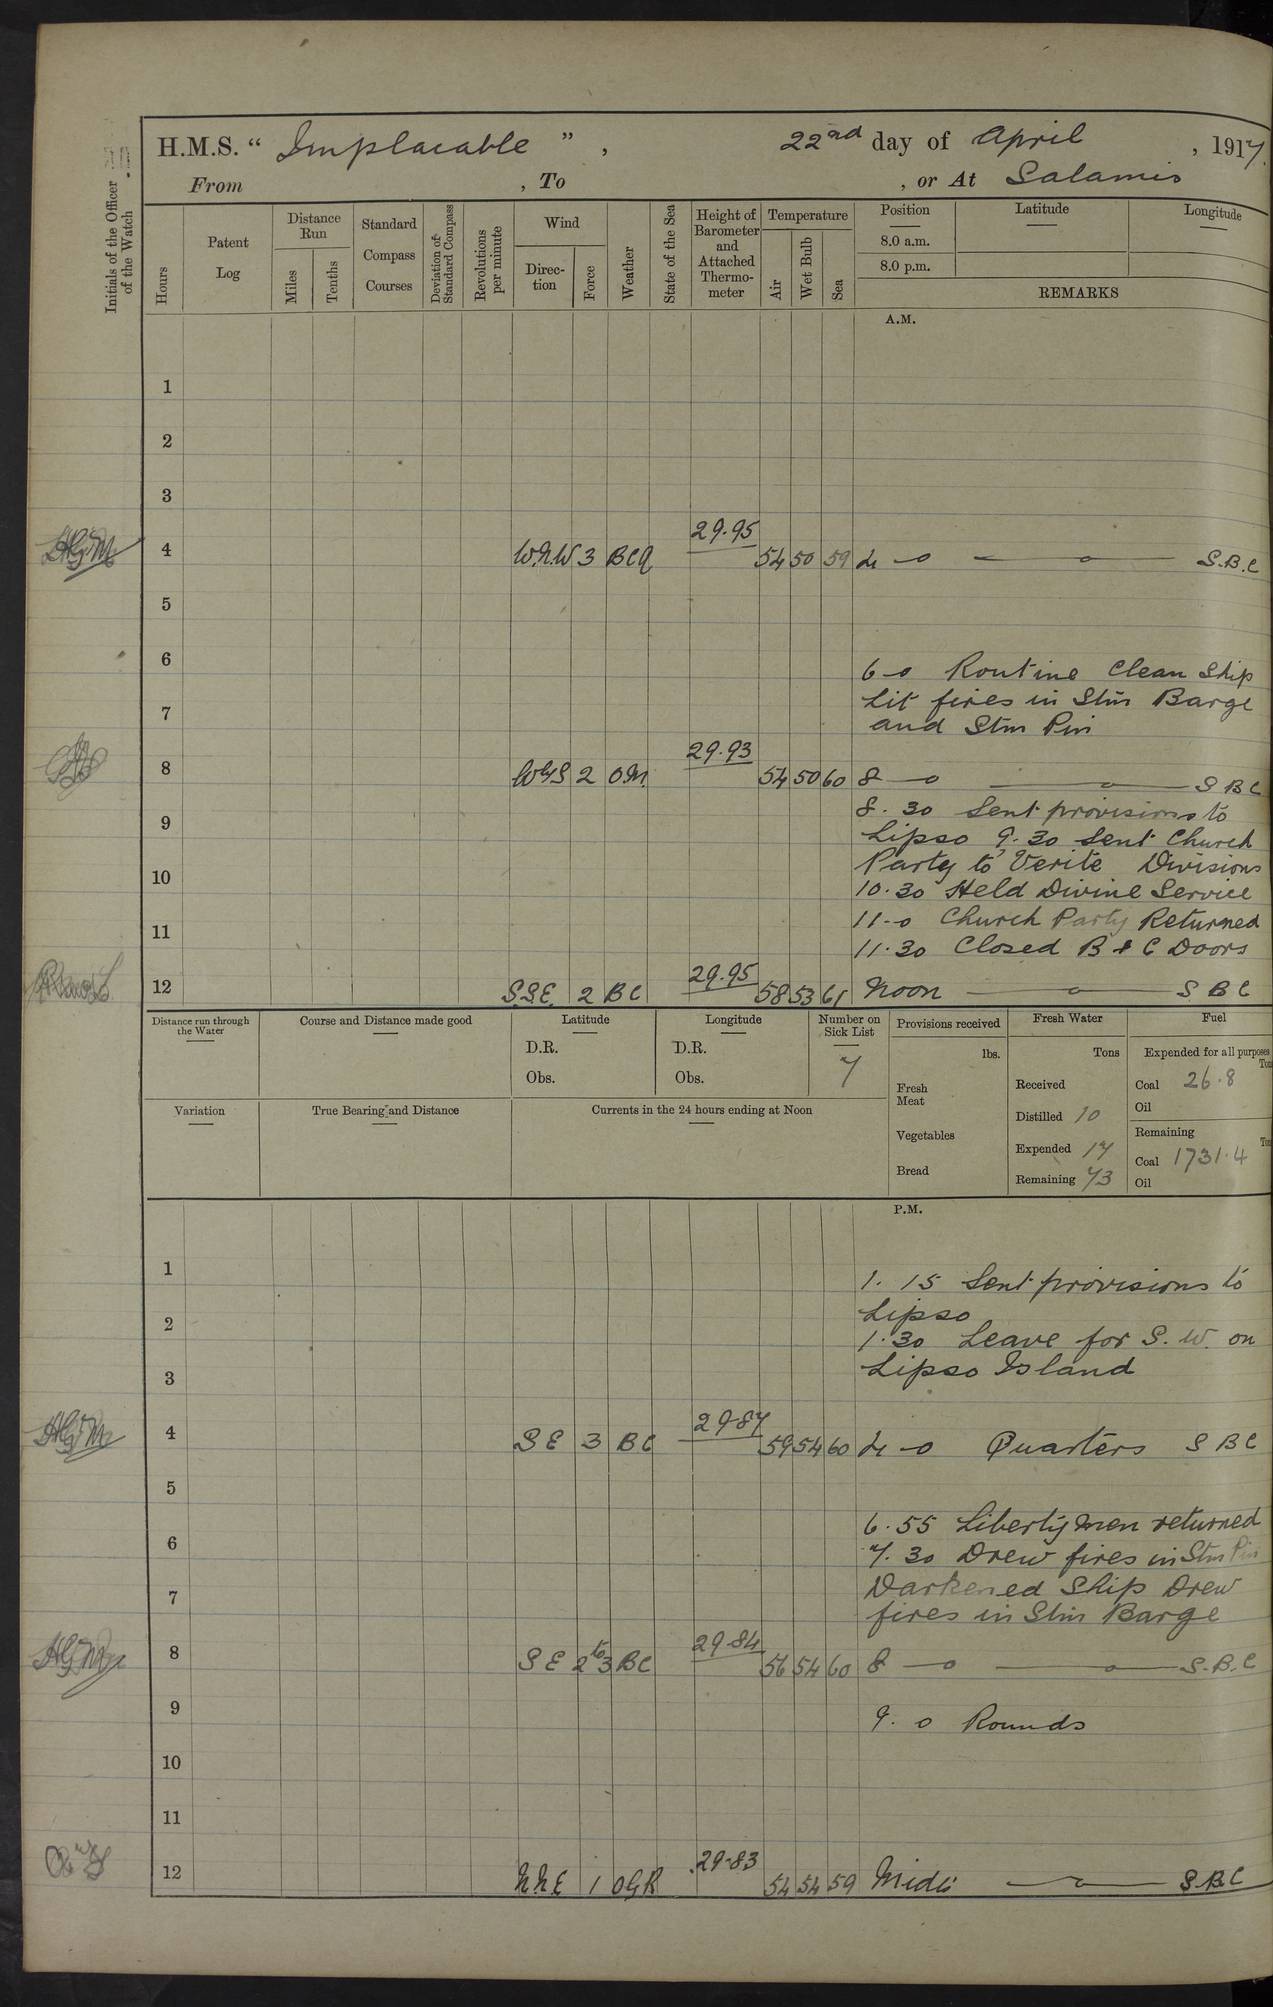 H.M.S. “ Implacable ” , 22nd day of April , 1917.
From , To , or At Salamis
Initials of the Officer of the Watch
Hours
Patent Log
Distance Run
Miles
Tenths
Standard Compass Courses
Deviation of Standard Compass
Revolutions per minute
Wind
Direc-tion
Force
Weather
State of the Sea
Height of Barometer and Attached Thermo-meter
Temperature
Air
Wet Bulb
Sea
Position Latitude Longitude
8.0 a.m.
8.0 p.m.
REMARKS
A.M.
1
2
3
29.95
4 W.N.W 3 BCQ 54 50 59 4 - 0 S.B.C
5
6
6 - 0 Routine Clean Ship
7 Lit fires in Stm Barge
and Stm Pin
29.93
8 WYS 2 OM. 54 50 60 8 - 0 S B C
8.30 Sent provisions to
9
Lipso 9.30 Sent Church
Party to Verite Divisions
10
10.30 Held Divine Service
11-0 Church Party Returned
11
11.30 Closed B & C Doors
29.95
12 S.S.E. 2 BC 58 53 61 Noon S B C
Distance run through the Water
Course and Distance made good
Latitude
D.R.
Obs.
Longitude
D.R.
Obs.
Number on Sick List
7
Provisions received
lbs.
Fresh Meat
Vegetables
Bread
Fresh Water
Tons
Received
Distilled 10
Expended 17
Remaining 73
Fuel
Expended for all purposes
Tons
Coal 26.8
Oil
Remaining
Tons
Coal 1731.4
Oil
Variation
True Bearing and Distance
Currents in the 24 hours ending at Noon
P.M.
1
1.15 Sent provisions to
2 Lipso
1.30 Leave for S.W. on
3 Lipso Island
29.87
4 SE 3 BC 59 54 60 4 - 0 Quarters S B C
5
6.55 Liberty men returned
6
7.30 Drew fires in Stm Pin
7 Darkened Ship Drew
fires in Stm Barge
29.84
8 SE 2 to 3 BC 56 54 60 8 - 0 S.B.C
9
9.0 Rounds
10
11
29.83
12 NNE 1 OGR 54 54 59 Midt S.B.C